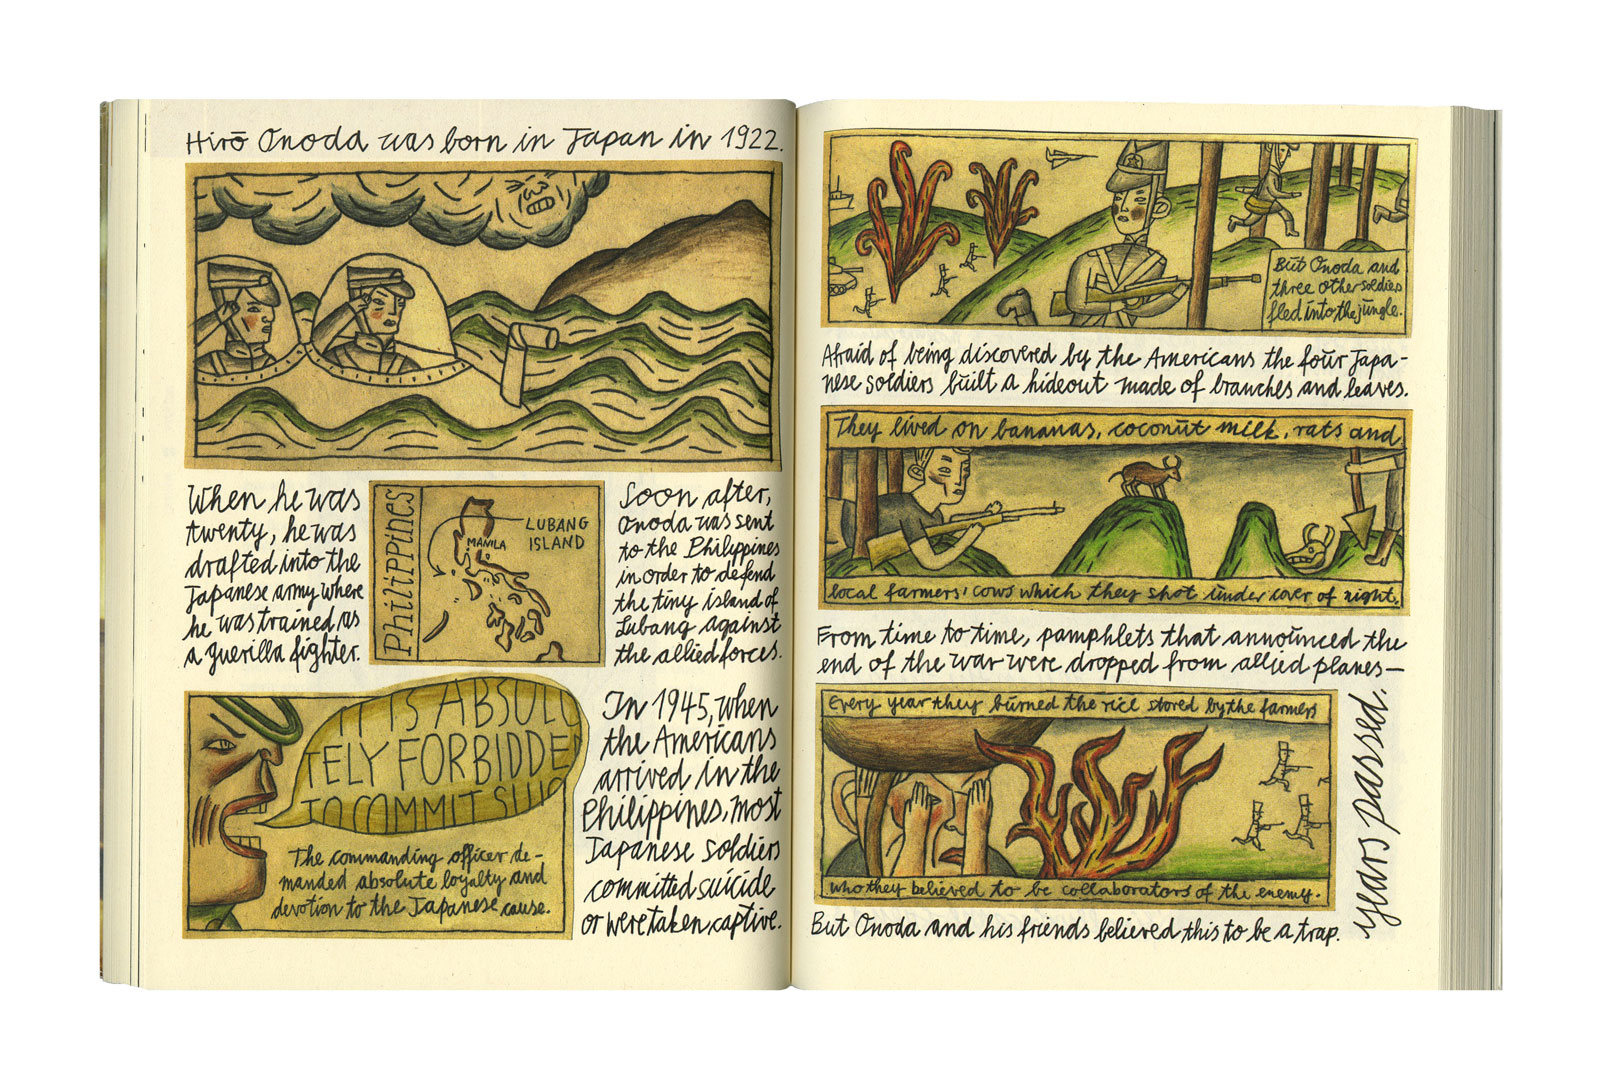 Hirō Onoda was born in Japan in 1922.
When he was
twenty, he was
drafted into the
Japanese army where
he was trained as
a guerilla fighter.
PhiliPPiNeS
MANILA
LUBANG
ISLAND
Soon after,
Onoda was sent
to the Philippines
in order to defend
the tiny island of
Lubang against
the allied forces.
IT IS ABSOLU
TELY FORBIDDE
TO COMMIT SUIC
The commanding officer de-
manded absolute loyalty and
devotion to the Japanese cause.
In 1945, when
the Americans
arrived in the
Philippines, most
Japanese soldiers
committed suicide
or were taken captive.
But Onoda and
three other soldiers
fled into the jungle.
Afraid of being discovered by the Americans the four Japa-
nese soldiers built a hideout made of branches and leaves.
They lived on bananas, coconut milk, rats and
local farmers' cows which they shot under cover of night.
From time to time, pamphlets that announced the
end of the war were dropped from allied planes—
Every year they burned the rice stored by the farmers
who they believed to be collaborators of the enemy.
But Onoda and his friends believed this to be a trap.
years passed.